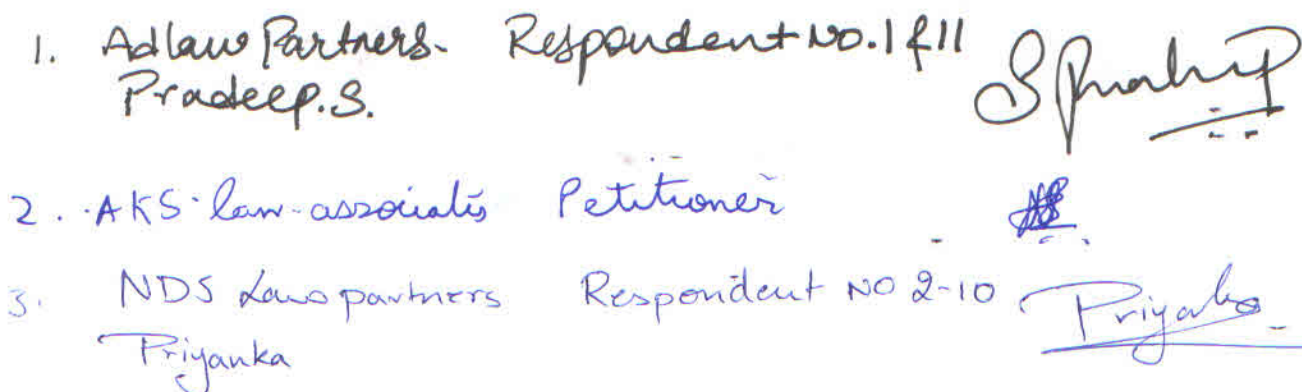 1. Adlaw Partners. Respondent NO. 1 & 11
Pradeep.S. S Pradeep
2. AKS law associates Petitioner
3. NDS Law partners Respondent NO 2-10
Priyanka Priyanka